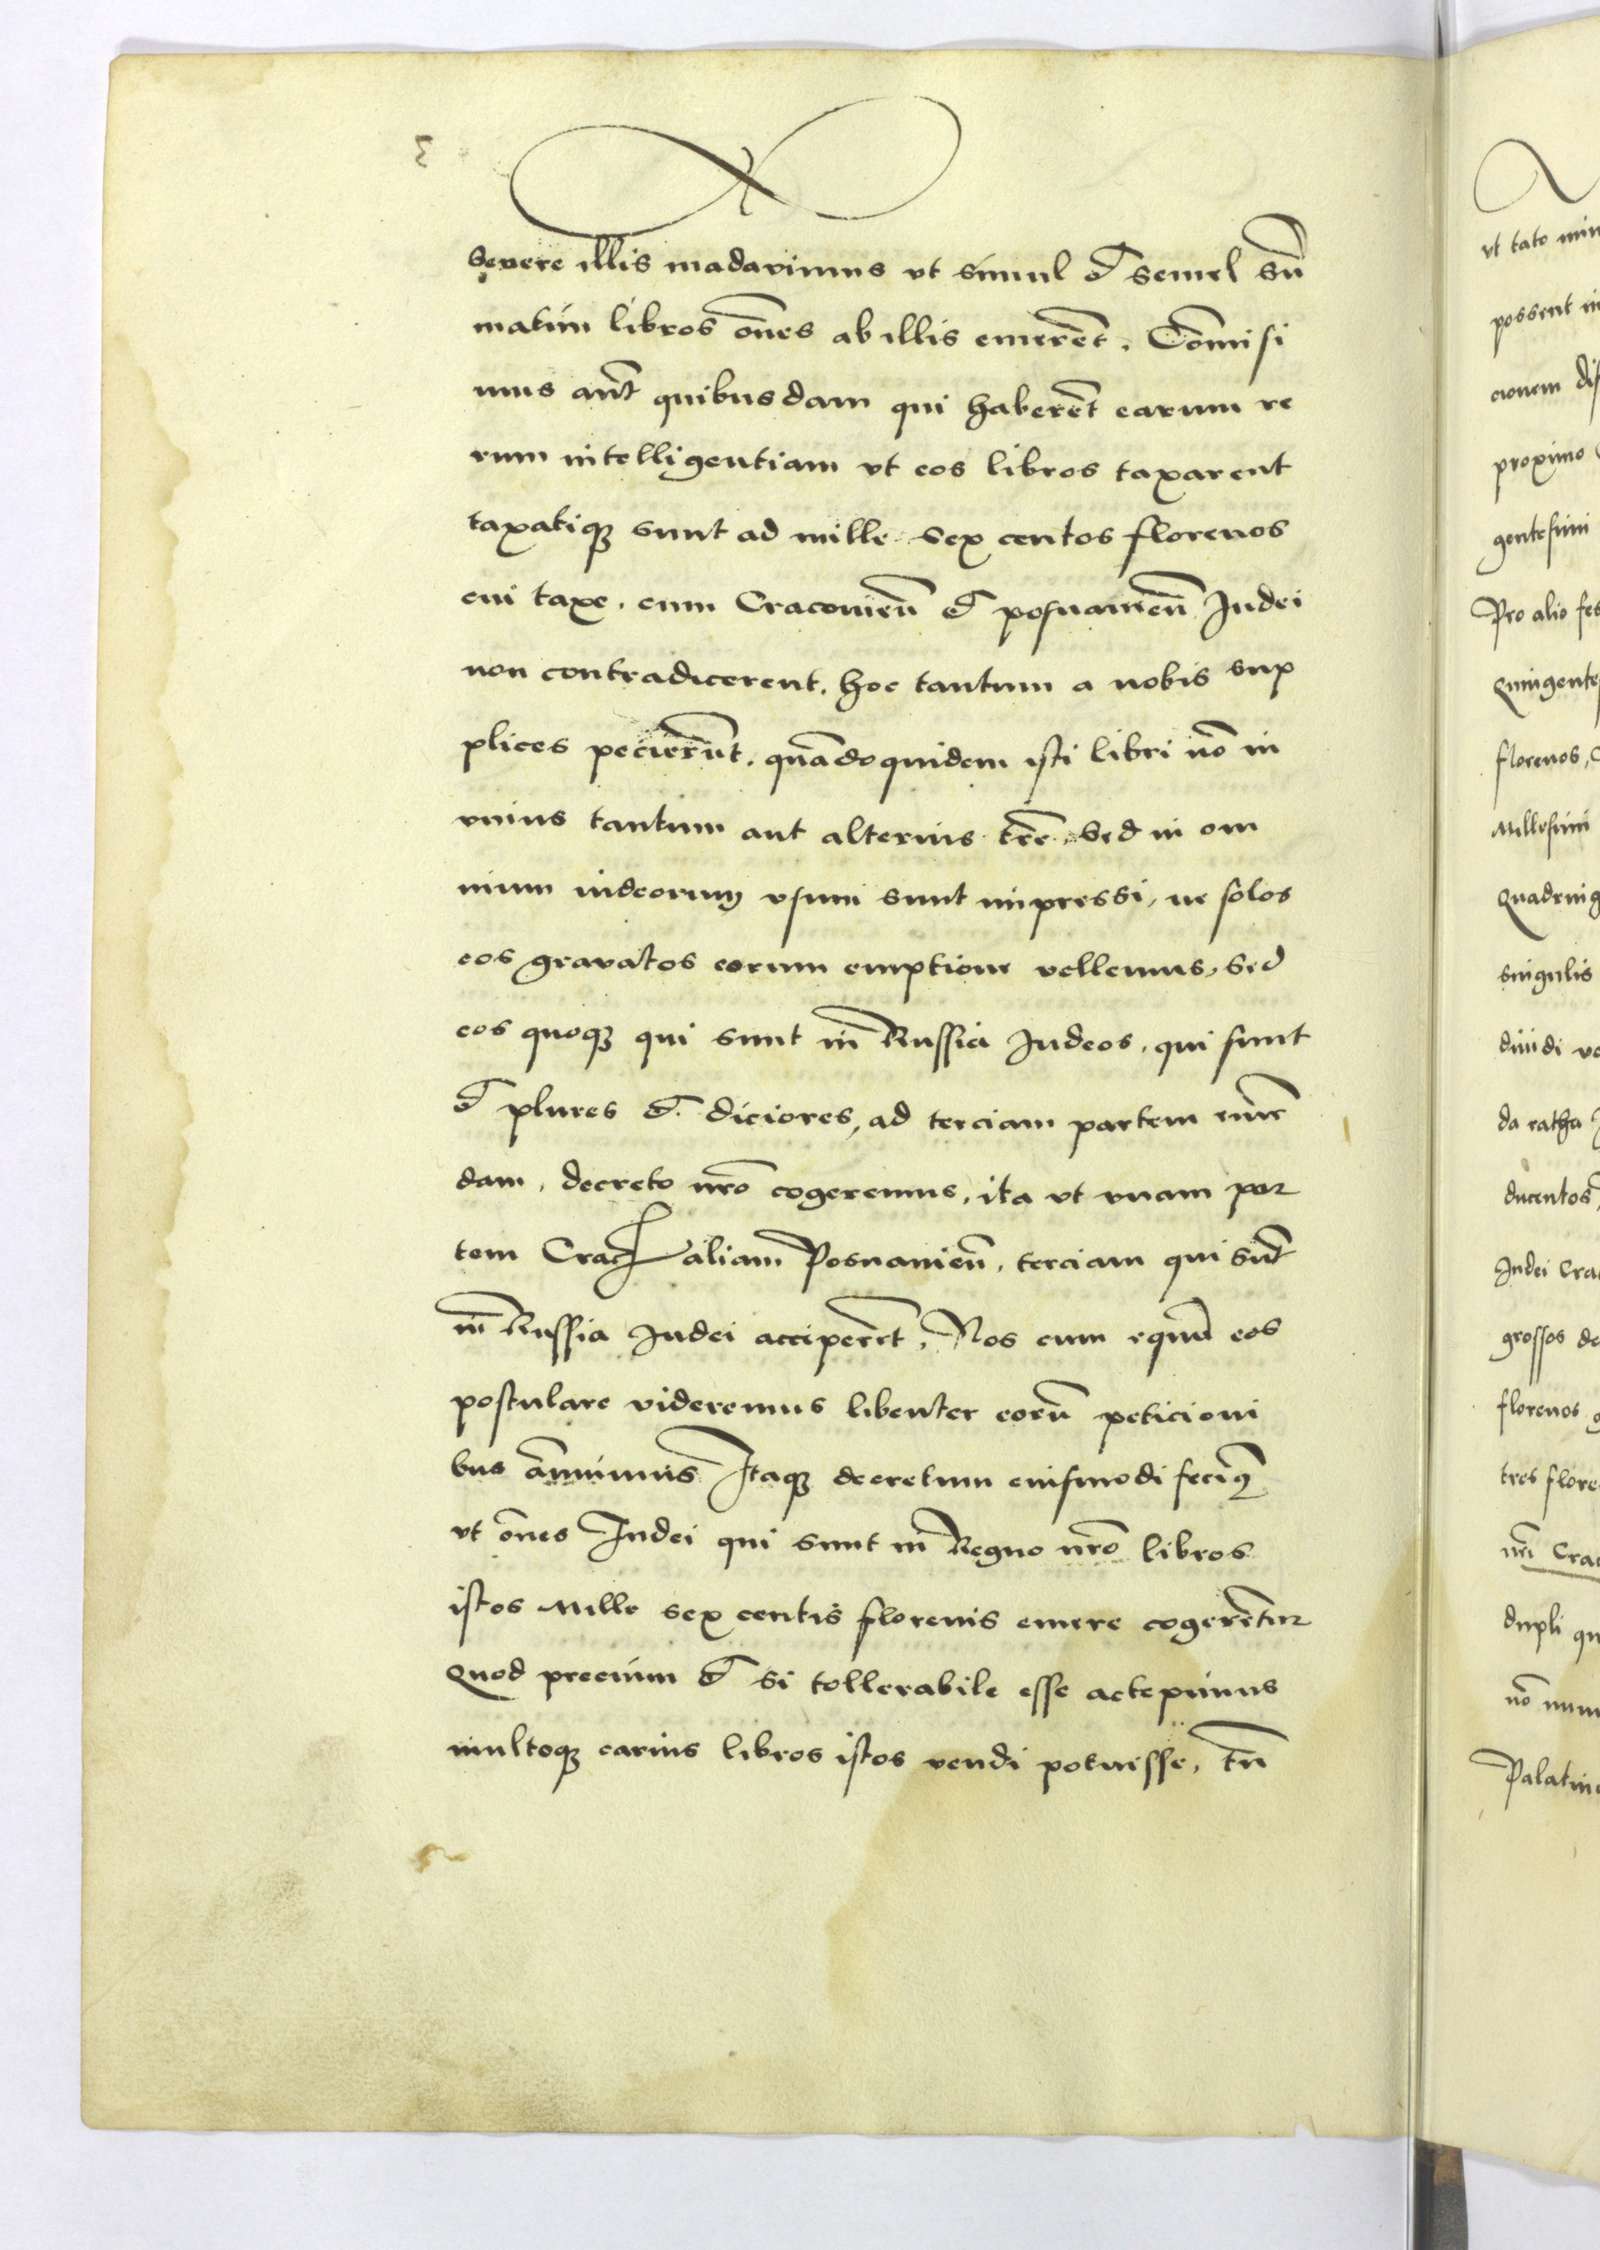 3
Severe illis madavimus vt simul et semel sum̄
matim libros om̄es ab illis emerēt. Com̄isi
mus aūt quibusdam qui haberēt earum re
rum intelligentiam vt eos libros taxarent
taxatiqz sunt ad mille sex centos florenos
cui taxe, cum Cracovien̄ et posnanien̄ Judei
non contradicerent, hoc tantum a nobis sup
plices pecierūt, quādoquidem isti libri nō in
vnius tantum aut alterius tr̄e, sed in om
nium iudeorum vsum sunt impressi, ne solos
eos gravatos eorum emptione vellemus, sed
eos quoqz qui sunt in Russia Judeos, qui sunt
et plures et diciores, ad terciam partem eme
dam, decreto nr̄o cogeremus, ita vt vnam par
tem Crac aliam Posnanien̄, terciam qui sūt
in Russia Judei acciperēt, Nos cum equū eos
postulare videremus libenter eorū peticioni
bus annuimus Itaqz decretum eiusmodi fecimus
vt om̄es Judei qui sunt in Regno nr̄o libros
istos Mille sex centis florenis emere cogerētur
Quod precium et si tollerabile esse accepimus
multoqz carius libros istos vendi potuisse, tn̄
vt tato
possent
cionem
proximo
gentesimi
Pro alio
Quingente
florenos,
Millesimi
Quadring
singulis
diuidi
da ratha
ducentos,
Judei Crac
grossos de
florenos
tres flore
nr̄i Crac
dupli
nō
Palatin